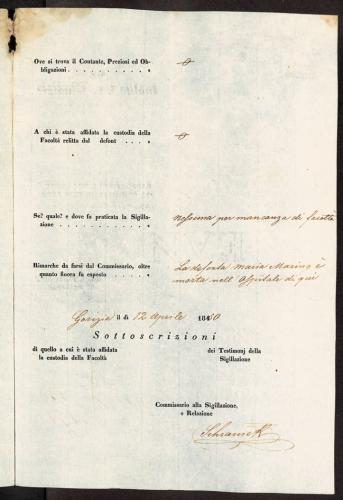 Ove si trova il Contante, Preziosi ed Ob-
bligazioni . . . . . . . . . . "
A chi è stata affidata la custodia della
Facoltà relitta dal defont . . . "
Se? quale? e dove fu praticata la Sigilla-
zione . . . . . . . . . . . . "
Nessuna per mancanza di facoltà
Rimarche da farsi dal Commissario, oltre
quanto finora fu esposto . . . . . "
La defonta Maria Marino è
morta nell' Ospitale di qui
Gorizia il dì 12 Aprile 1850
Sottoscrizioni
di quello a cui è stata affidata
la custodia della Facoltà
dei Testimonj della
Sigillazione
Commissario alla Sigillazione.
e Relazione